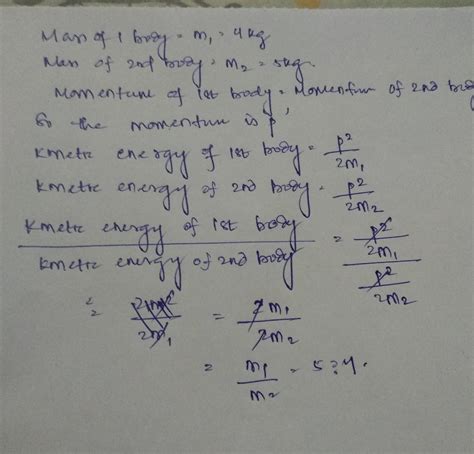 Mass of 1 body = m₁ = 4kg
Mass of 2nd body = m₂ = 5kg.
Momentum of 1st body = Momentum of 2nd body
So the momentum is p,
Kinetic energy of 1st body = p²/2m₁
Kinetic energy of 2nd body = p²/2m₂
Kinetic energy of 1st body / Kinetic energy of 2nd body = (p²/2m₁) / (p²/2m₂)
= = 2m₁/2m₂
= m₁/m₂ = 5:4.